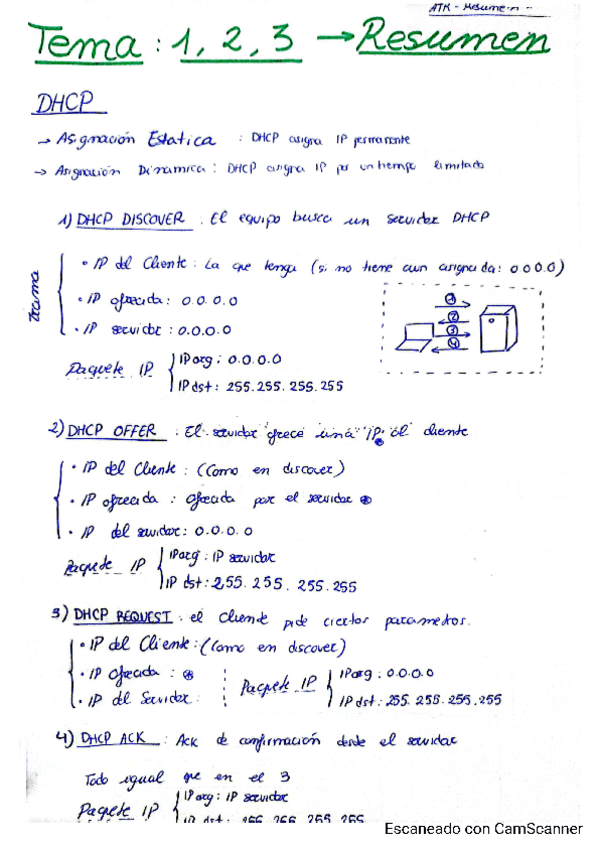 ATR - Resumen -
Tema : 1, 2, 3 → Resumen
DHCP
→ Asignación Estatica : DHCP asigna IP permanente
→ Asignación Dinamica : DHCP asigna IP por un tiempo limitado
1) DHCP DISCOVER : El equipo busca un servidor DHCP
trama
• IP del Cliente : La que tenga (si no tiene aun asignada : 0 0 0.0)
• IP ofrecida : 0.0.0.0
• IP servidor : 0.0.0.0
1
2
3
4
Paquete IP
IP org : 0.0.0.0
IP dst : 255.255.255.255
2) DHCP OFFER : El servidor ofrece una IP al cliente
• IP del Cliente : (Como en discover)
• IP ofrecida : Ofrecida por el servidor
• IP del servidor : 0.0.0.0
Paquete IP
IP org : IP servidor
IP dst : 255.255.255.255
3) DHCP REQUEST : el Cliente pide ciertos parametros.
• IP del Cliente : (Como en discover)
• IP Ofrecida :
• IP del Servidor :
Paquete IP
IP org : 0.0.0.0
IP dst : 255.255.255.255
4) DHCP ACK : Ack de confirmación desde el servidor
Todo igual que en el 3
Paquete IP
IP org : IP servidor
IP dst : 255.255.255.255
Escaneado con CamScanner